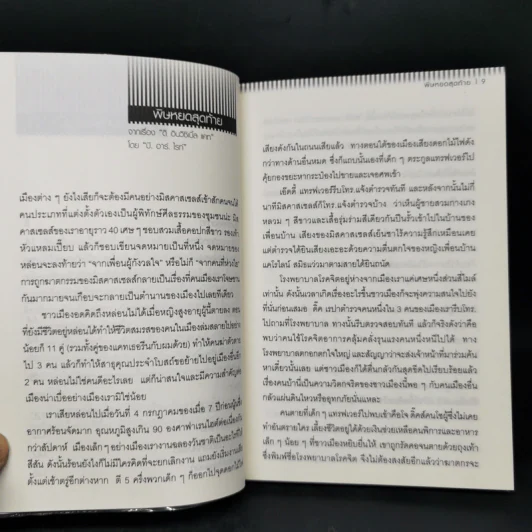 พิษหยดสุดท้าย
จากเรื่อง "ดิ อินวิซิเบิ้ล แคท"
โดย "บี. อาร์. โรท"
เมืองต่าง ๆ ยังไงเสียก็จะต้องมีคนอย่างมิสคาสเซลส์เข้าสักคนจนได้
คนประเภทที่แต่งตั้งตัวเองเป็นผู้พิทักษ์ศีลธรรมของชุมชนน่ะ มิส
คาสเซลส์ของเราอายุราว 40 เศษ ๆ ชอบสวมเสื้อคอปกสีขาว รองเท้า
หัวแหลมเปี๊ยบ แล้วก็ชอบเขียนจดหมายเป็นที่หนึ่ง จดหมายของ
หล่อนจะลงท้ายว่า "จากเพื่อนผู้กังวลใจ" หรือไม่ก็ "จากคนที่หวังดี"
การถูกฆาตกรรมของมิสคาสเซลส์กลายเป็นเรื่องที่คนเมืองเราโจษขาน
กันมากมายจนเกือบจะกลายเป็นตำนานของเมืองไปเลยทีเดียว
ชาวเมืองอดคิดถึงหล่อนไม่ได้เมื่อหญิงสูงอายุผู้นี้ตายลง ตอน
ที่ยังมีชีวิตอยู่หล่อนได้ทำให้ชีวิตสมรสของคนในเมืองล่มสลายไปอย่าง
น้อยก็ 11 คู่ (รวมทั้งคู่ของแคทเธอรีนกับผมด้วย) ทำให้คนฆ่าตัวตาย
ไป 3 คน แล้วก็ทำให้สาธุคุณประจำโบสถ์ขอย้ายไปอยู่เมืองอื่นอีก
2 คน หล่อนไม่ใช่คนดีอะไรเลย แต่ก็น่าสนใจและมีความสำคัญต่อ
เมืองน่าเบื่ออย่างเมืองเรามิใช่น้อย
เราเสียหล่อนไปเมื่อวันที่ 4 กรกฎาคมของเมื่อ 7 ปีก่อน
อากาศร้อนจัดมาก อุณหภูมิสูงเกิน 90 องศาฟาเรนไฮต์ต่อเนื่องกัน
กว่าสัปดาห์ เมืองเล็ก ๆ อย่างเมืองเรางานฉลองวันชาติเป็นอะไรที่มี
สีสัน ดังนั้นร้อนยังไงก็ไม่มีใครคิดที่จะยกเลิกงาน แถมยังเริ่มงาน
ตั้งแต่เช้าตรู่อีกต่างหาก ตี 5 ครึ่งพวกเด็ก ๆ ก็ออกไปจุดดอกไม้ไฟ
พิษหยดสุดท้าย | 9
เสียงดังกันในถนนเสียแล้ว ทางตอนใต้ของเมืองเสียงดอกไม้ไฟดัง
กว่าทางด้านอื่นหมด ซึ่งก็แถบนั้นเองที่เด็ก ๆ ตระกูลแทรฟเวอร์ไป
คุ้ยกองขยะหากระป๋องไปขายและเจอศพเข้า
เอ็ดดี้ แทรฟเวอร์รีบโทร.แจ้งตำรวจทันที และหลังจากนั้นไม่กี่
นาทีมิสคาสเซลส์ก็โทร.แจ้งตำรวจบ้าง ว่าเห็นผู้ชายสวมกางเกง
หลวม ๆ สีขาวและเสื้อรุ่มร่ามสีเดียวกันปีนรั้วเข้าไปในบ้านของ
เพื่อนบ้าน เสียงของมิสคาสเซลส์เย็นชาไร้ความรู้สึกเหมือนเคย
แต่ตำรวจได้ยินเสียงเอะอะด้วยความตื่นตกใจของหญิงเพื่อนบ้าน
แคโรไลน์ สมิธแว่วมาตามสายได้ยินถนัด
โรงพยาบาลโรคจิตอยู่ห่างจากเมืองเราแค่เศษหนึ่งส่วนสี่ไมล์
เท่านั้น ดังนั้นเวลาเกิดเรื่องอะไรขึ้นชาวเมืองก็จะพุ่งความสนใจไปยัง
ที่นั่นก่อนเสมอ ดี๊ด เรปาตำรวจคนหนึ่งใน 3 คนของเมืองเรารีบโทร.
ไปถามที่โรงพยาบาล ทางนั้นรีบตรวจสอบทันที แล้วก็จริงดังว่าคือ
พบว่าคนไข้โรคจิตอาการคลุ้มคลั่งรุนแรงคนหนึ่งหนีไปได้ ทาง
โรงพยาบาลตกอกตกใจใหญ่ และสัญญาว่าจะส่งเจ้าหน้าที่มาร่วมค้นหา
ทีเดียวนั้นเลย แต่ชาวเมืองก็ได้ตื่นกลัวกันสุดขีดไปเรียบร้อยแล้ว
เรื่องคนบ้านี่เป็นความวิตกจริตของชาวเมืองนี้พอ ๆ กับคนเมืองอื่น
กลัวแผ่นดินไหวหรืออุทกภัยนั่นแหละ
คนตายที่เด็ก ๆ แทรฟเวอร์ไปพบเข้าคือใจ ดิ๊กสัน คนใช้ผู้ซึ่งไม่เคย
ทำอันตรายใคร เลี้ยงชีวิตอยู่ได้ด้วยเงินช่วยเหลือคนพิการและอาหาร
เล็ก ๆ น้อย ๆ ที่ชาวเมืองหยิบยื่นให้ เขาถูกรัดคอจนตายด้วยถุงเท้า
ซึ่งพิมพ์ชื่อโรงพยาบาลโรคจิต จึงไม่ต้องสงสัยอีกแล้วว่าฆาตกรจะ